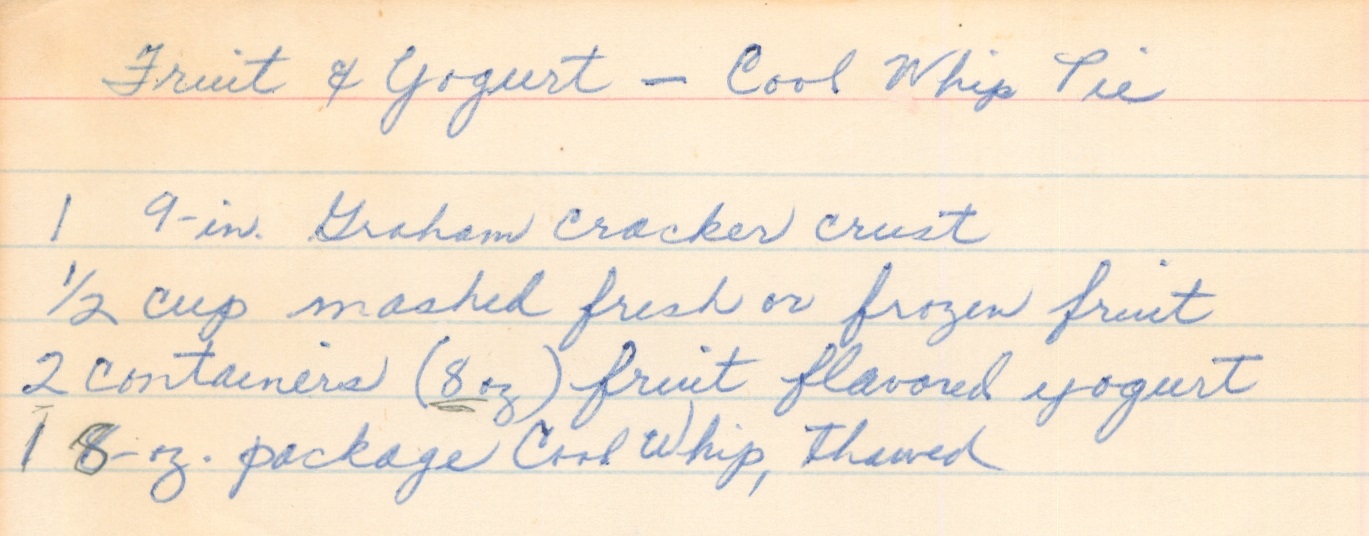 Fruit & Yogurt — Cool Whip Pie
1 9-in. Graham cracker crust
1/2 cup mashed fresh or frozen fruit
2 containers (8 oz) fruit flavored yogurt
1 8-oz. package Cool Whip, thawed